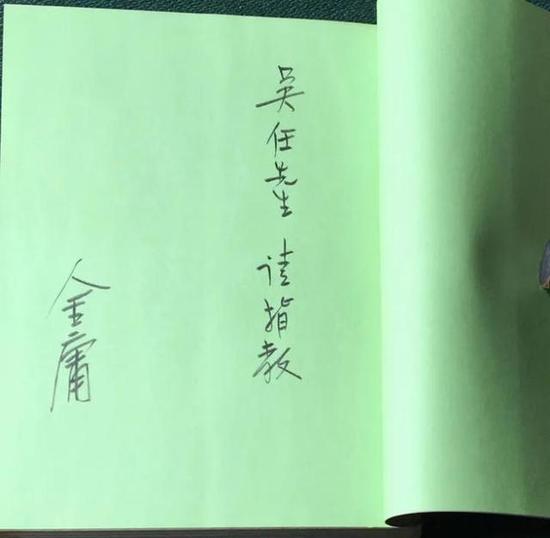 吴任先生 请指教
金庸